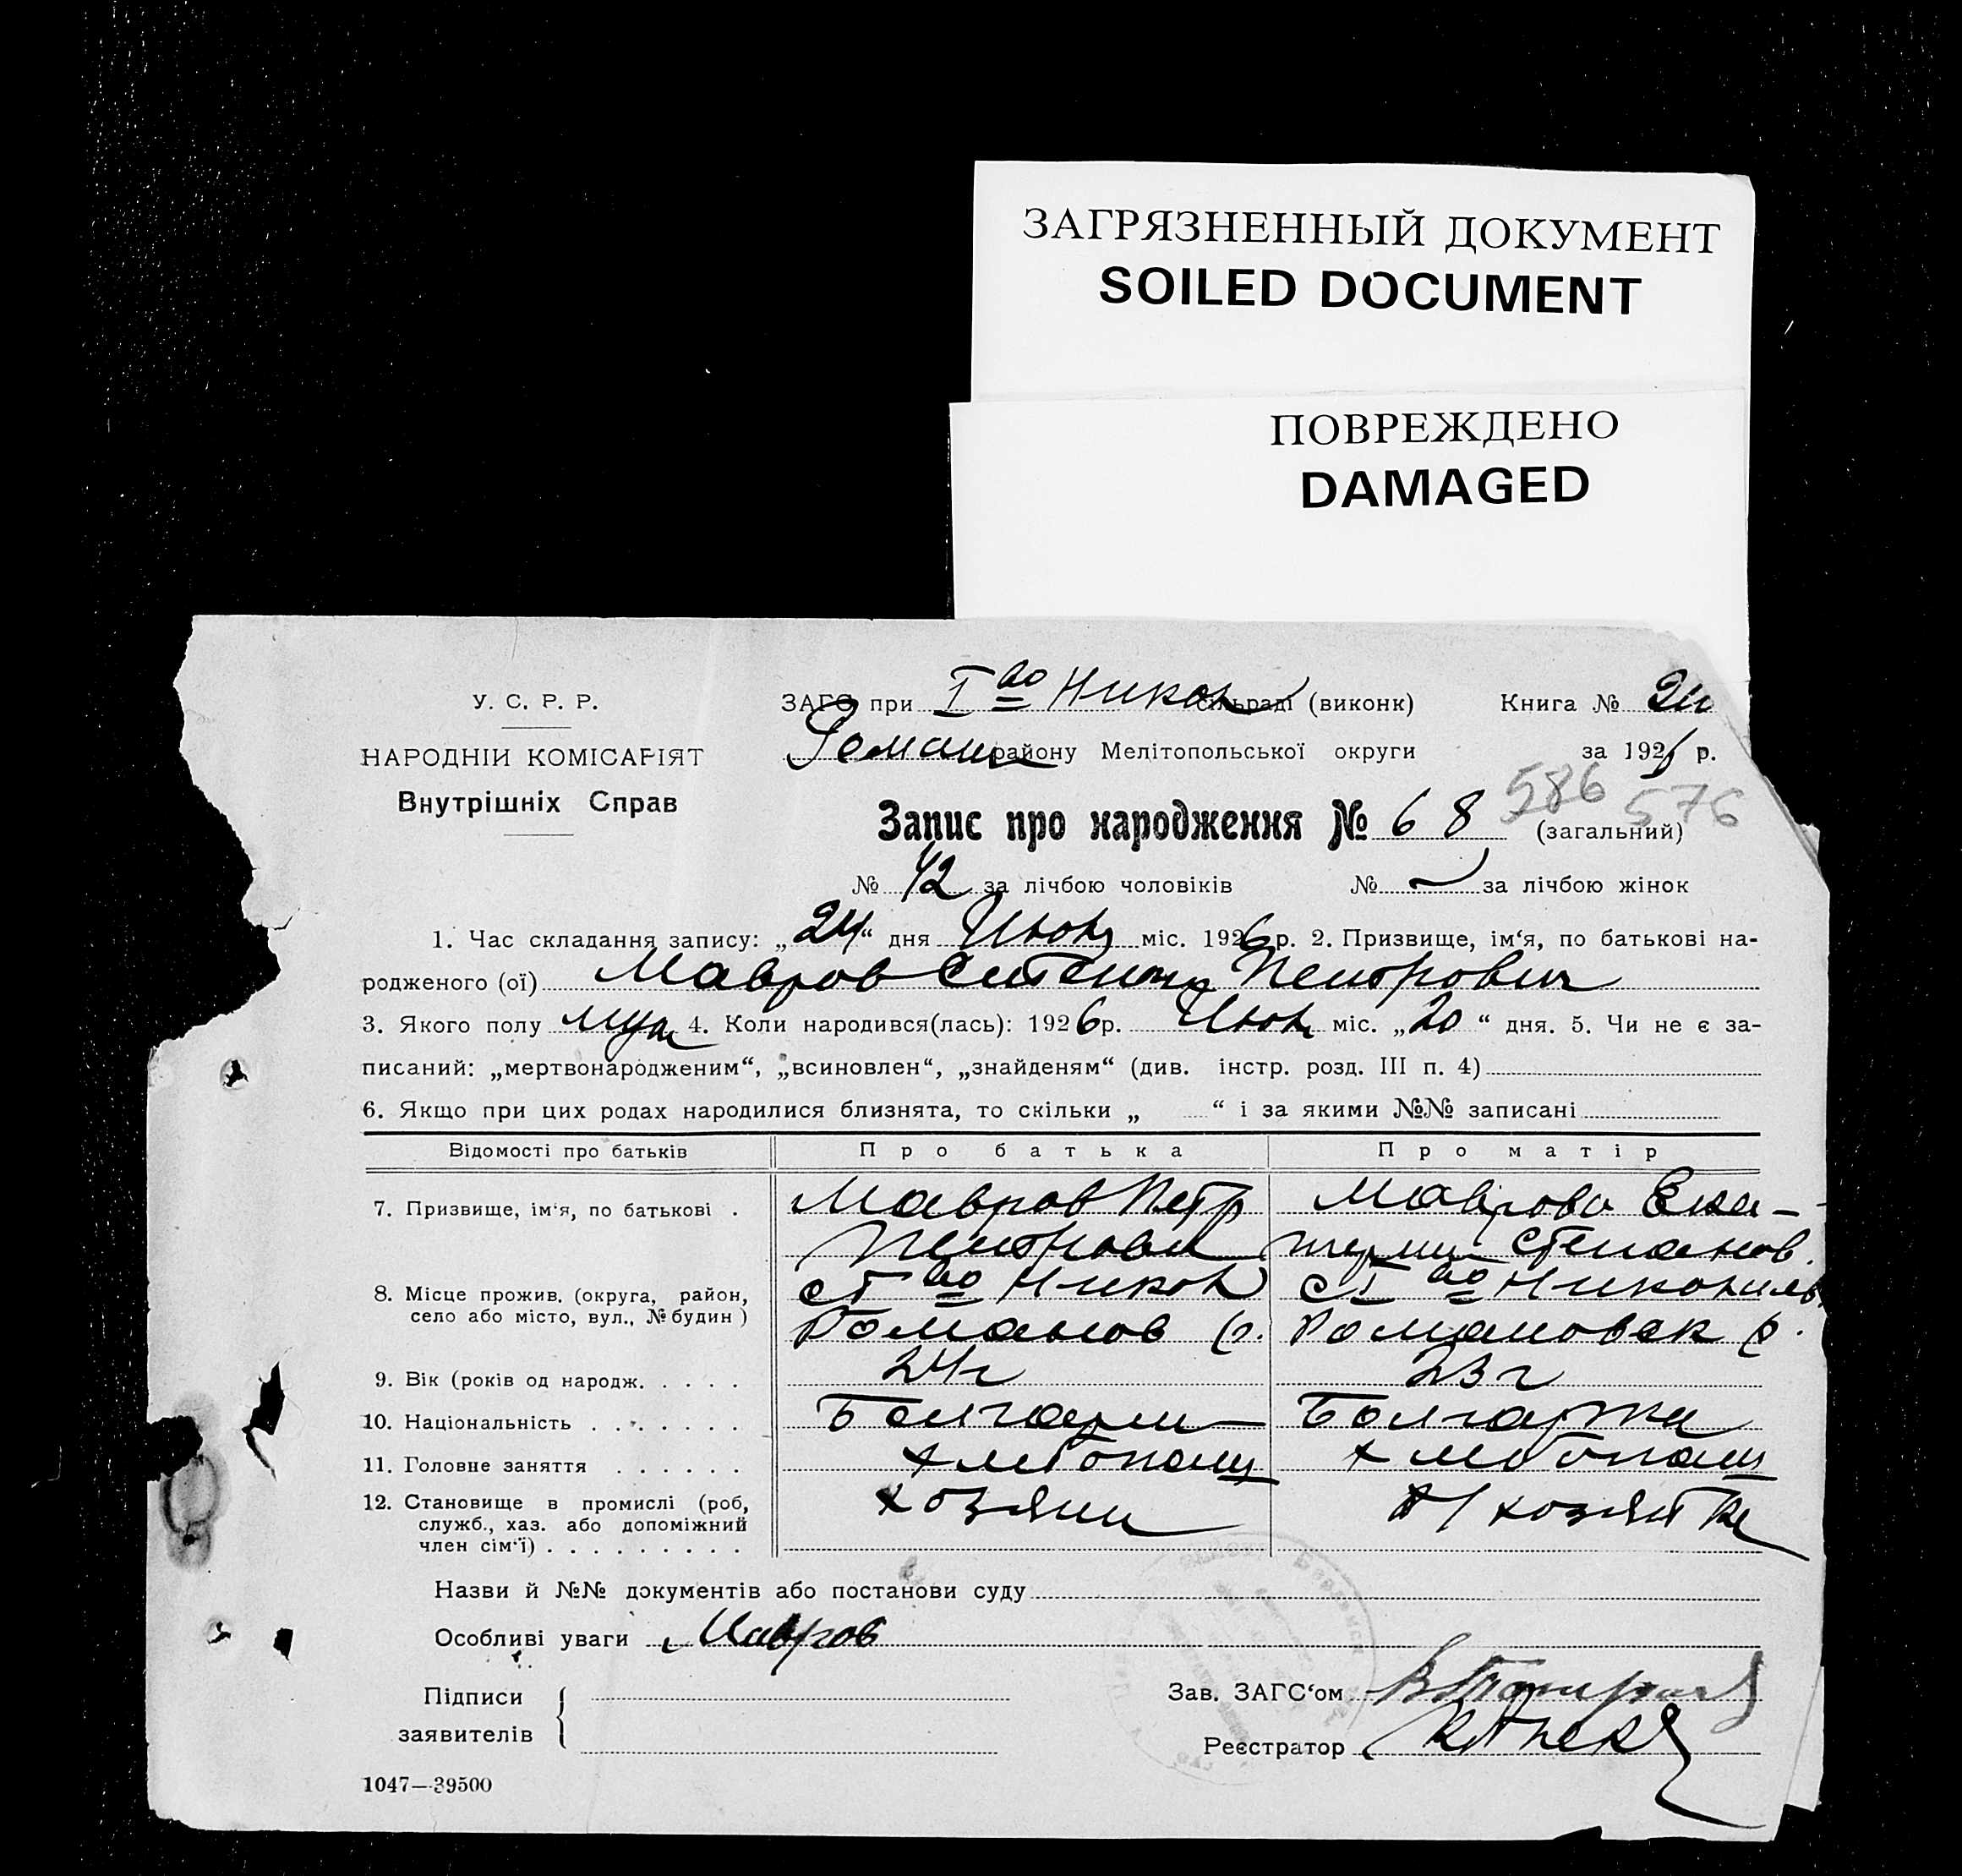 ЗАГРЯЗНЕННЫЙ ДОКУМЕНТ
SOILED DOCUMENT
ПОВРЕЖДЕНО
DAMAGED
У. С. Р. Р.
НАРОДНІЙ КОМІСАРІЯТ
Внутрішніх Справ
ЗАГС при I во Никон сільраді (виконк) Книга №
Роман району Мелітопольської округи за 1926 р.
586 576
Запис про народження № 68 (загальний)
№ 42 за лічбою чоловіків № — за лічбою жінок
1. Час складання запису: „24“ дня Июня міс. 1926 р. 2. Призвище, ім‘я, по батькові на-
родженого (ої) Мавров Петрович
3. Якого полу муж 4. Коли народився(лась): 1926р. Июня міс. „20“ дня. 5. Чи не є за-
писаний: „мертвонародженим“, „всиновлен“, „знайденям“ (див. інстр. розд. III п. 4)
6. Якщо при цих родах народилися близнята, то скільки „ “ і за якими №№ записані
Відомості про батьків Про батька Про матір
7. Призвище, ім‘я, по батькові . Мавров Петр Маврова Ека-
Петрович терин Степанов.
8. Місце прожив. (округа, район, с I во Никон с I во Никониль
село або місто, вул., № будин ) Романов р. Романовск р.
9. Вік (років од народж. . . . . 24 г 23 г
10. Національність . . . . . . Болгарин Болгарка
11. Головне заняття . . . . . . хлебопаш хлебопаш
12. Становище в промислі (роб, хозяин хозяйке
служб., хаз. або допоміжний
член сім‘ї) . . . . . . . . .
Назви й №№ документів або постанови суду
Особливі уваги Мавров
Підписи
заявителів
Зав. ЗАГС‘ом
Реєстратор
1047—39500